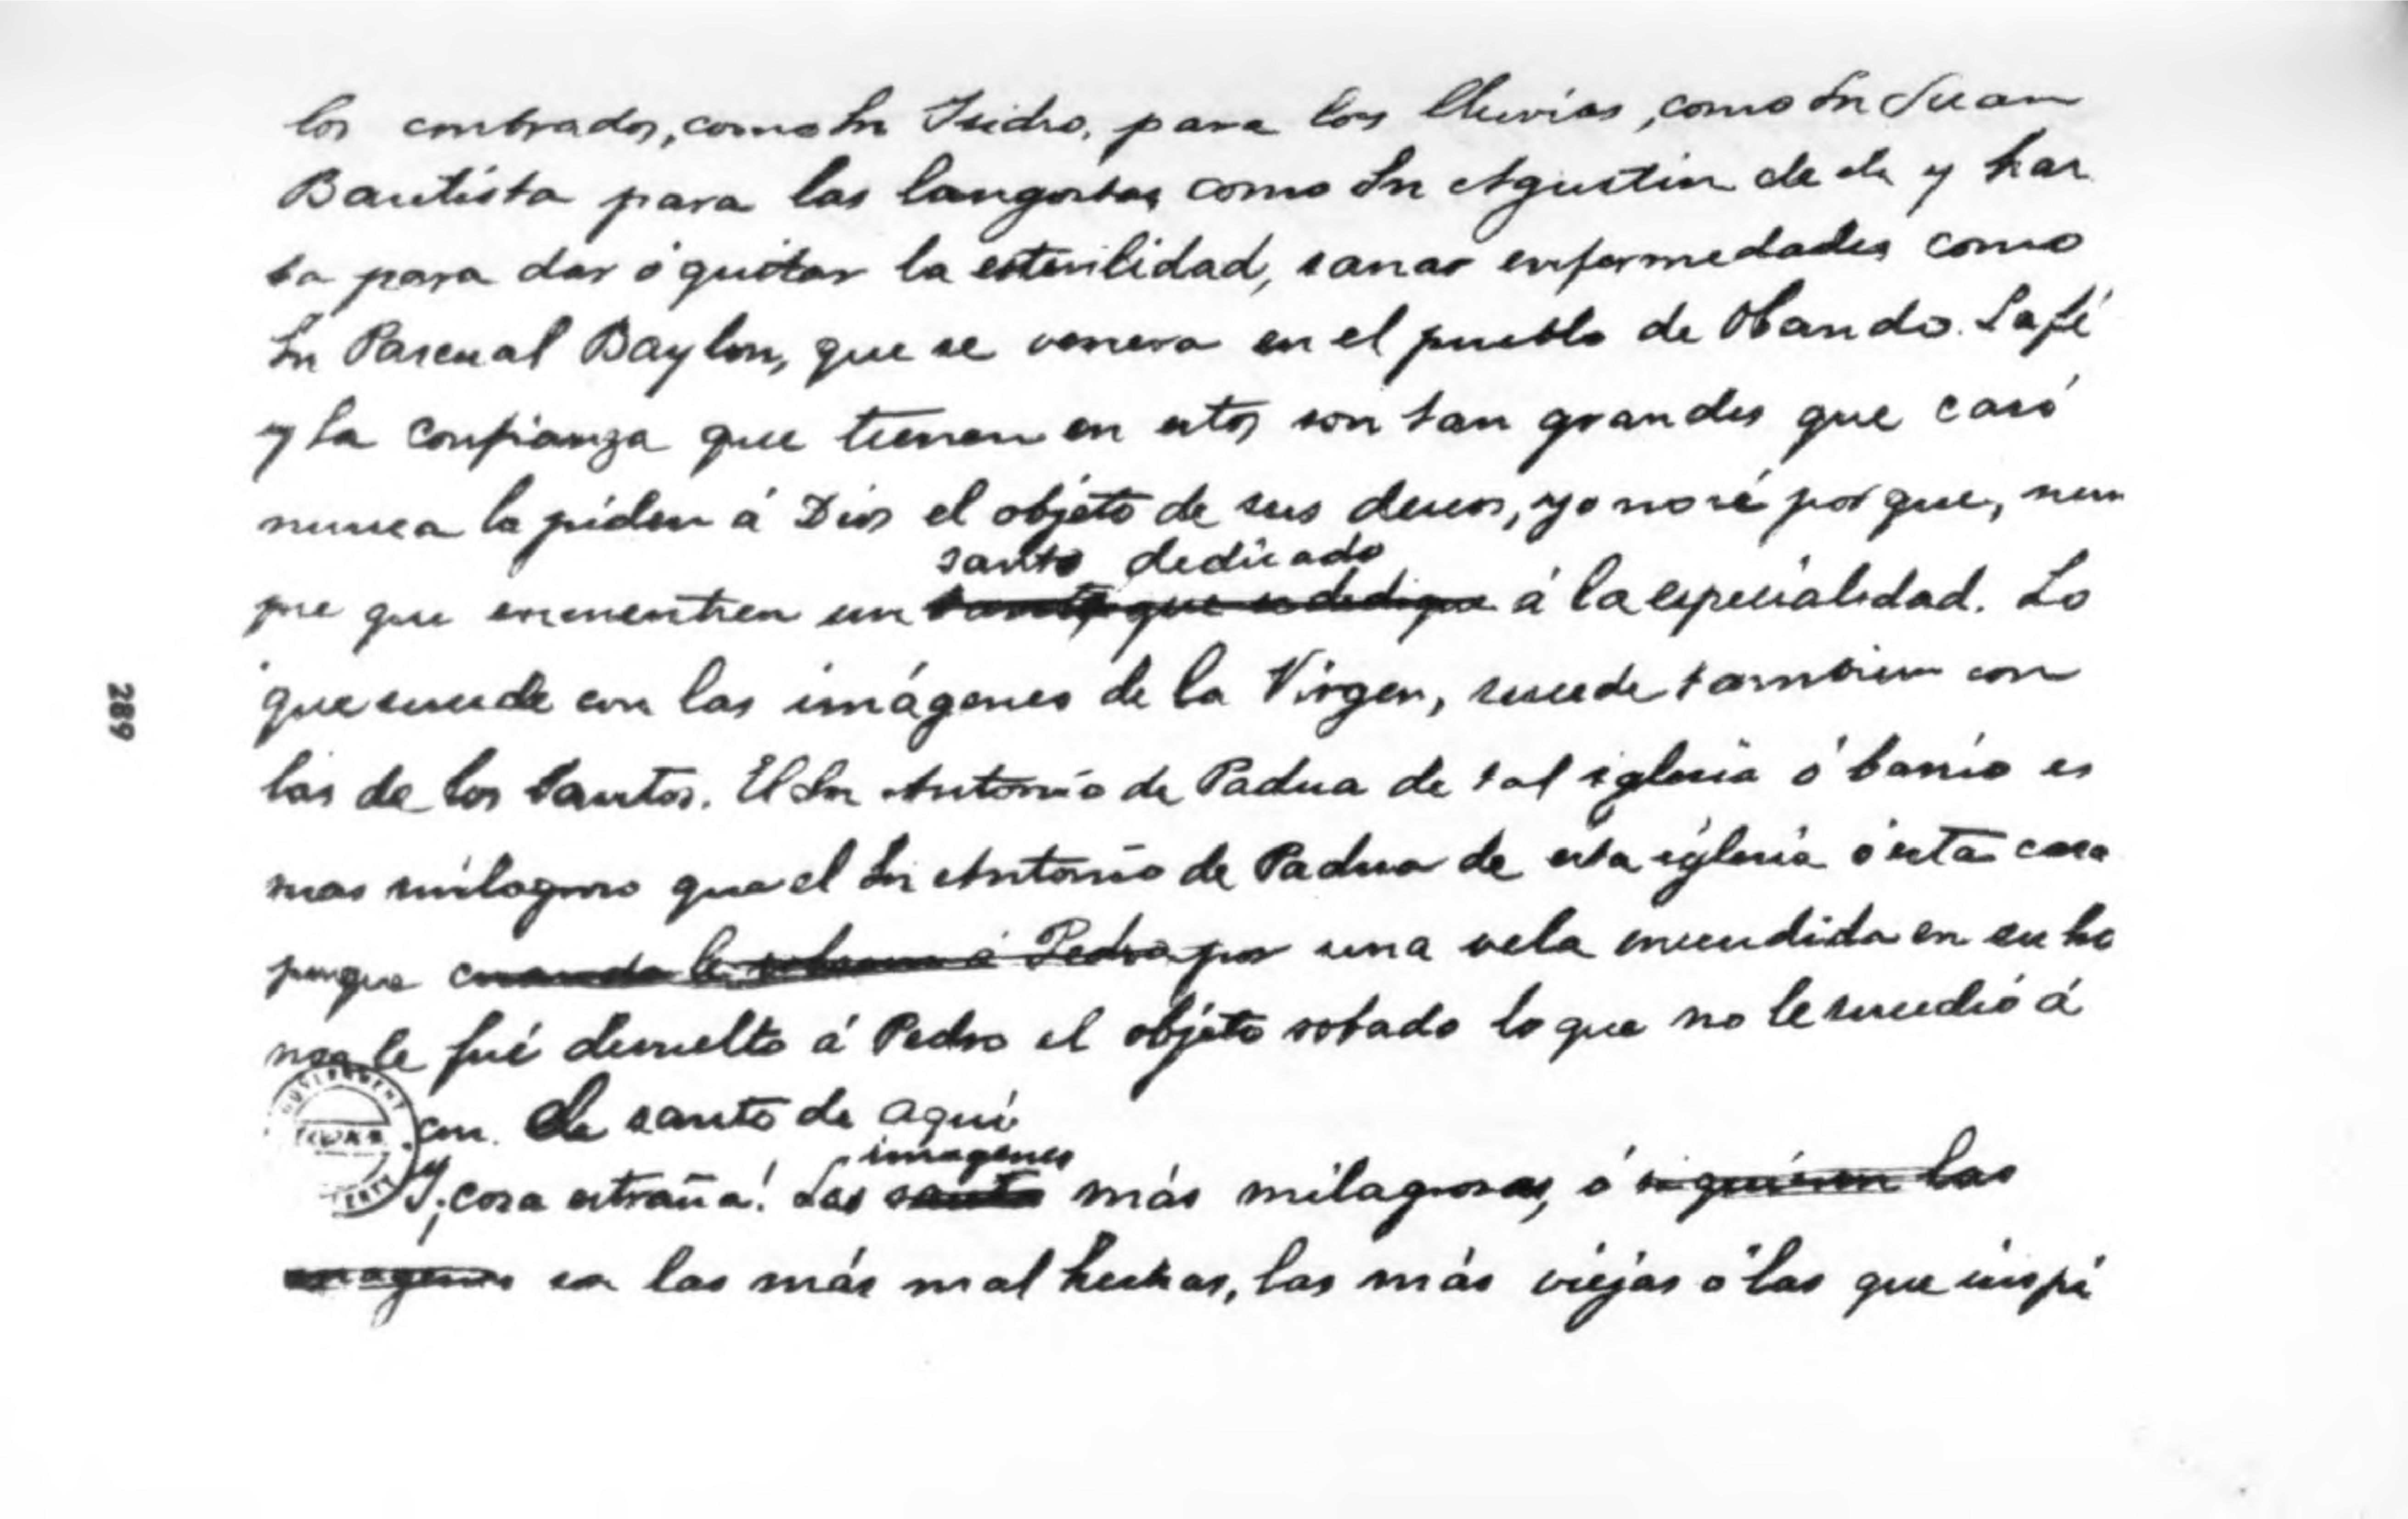 los sembrados, como Sn Isidro, para las lluvias, como Sn Juan
Bautista para las langostas como Sn Agustin de de y has
ta para dar ó quitar la esterilidad, sanar enfermedades como
Sn Pascual Baylon, que se venera en el pueblo de Obando. La fé
y la confianza que tienen en estos son tan grandes que casi
nunca le piden á Dios el objeto de sus deseos, yo no sé por que, siem
santo dedicado
pre que encuentren un santo que se dedique á la especialidad. Lo
que sucede con las imágenes de la Virgen, sucede tambien con
las de los Santos. El Sn Antonio de Padua de tal iglesia ó barrio es
mas milagroso que el Sn Antonio de Padua de esta iglesia ó esta casa
porque cuando le robaron á Pedro por una vela encendida en su ho
nor le fué devuelto á Pedro el objeto robado lo que no le sucedió á
con el santo de aqui
imagenes
Y ¡cosa estraña! Las santo más milagrosas, ó si quieren las
imagenes son las más mal hechas, las más viejas ó las que inspi
289